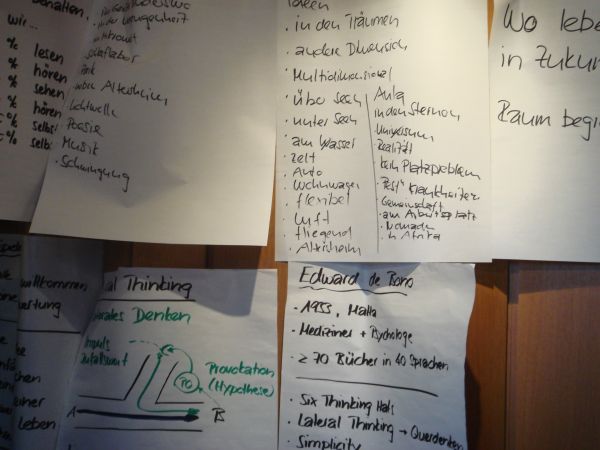 behalten,
wir...
% lesen
% hören
% sehen
% hören
% selbst
% selbs
in der Vergangenheit
Altersheim
Lichtwelle
Poesie
Musik
Schwingung
Ideen
· in den Träumen
· andere Dimension
· Multidimensional
· über Seen
· unter Seen
· am Wasser
· Zelt
· Auto
· Wohnwagen
· flexibel
· Luft
fliegend
· Altersheim
Aula
in den Sternen
Universum
Realität
kein Platzproblem
"Pest" Krankheiten
Gemeinschaft
· am Arbeitsplatz
· Nomade
in Afrika
Wo lebe
in Zukun
Raum begi
willkommen
einer
Leben
al Thinking
rales Denken
Impuls
Zufallswort
Provokation
(Hypothese)
PO
A
B
Edward de Bono
· 1933, Malta
· Mediziner + Psychologe
· ≥ 70 Bücher in 40 Sprachen
· Six Thinking Hats
· Lateral Thinking → Querdenken
· Simplicity